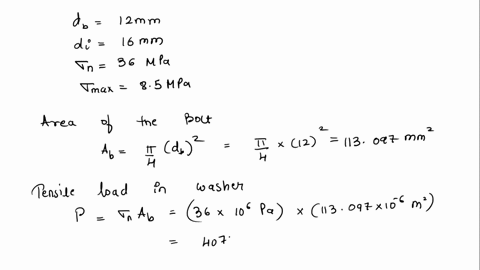 d_b = 12mm
di = 16mm
σn = 36 MPa
σmax = 8.5 MPa
Area of the Bolt
A_b = π/4 (d_b)^2 = π/4 × (12)^2 = 113.097 mm^2
Tensile load in washer
P = σn A_b = (36 × 10^6 Pa) × (113.097 × 10^-6 m^2)
= 407.